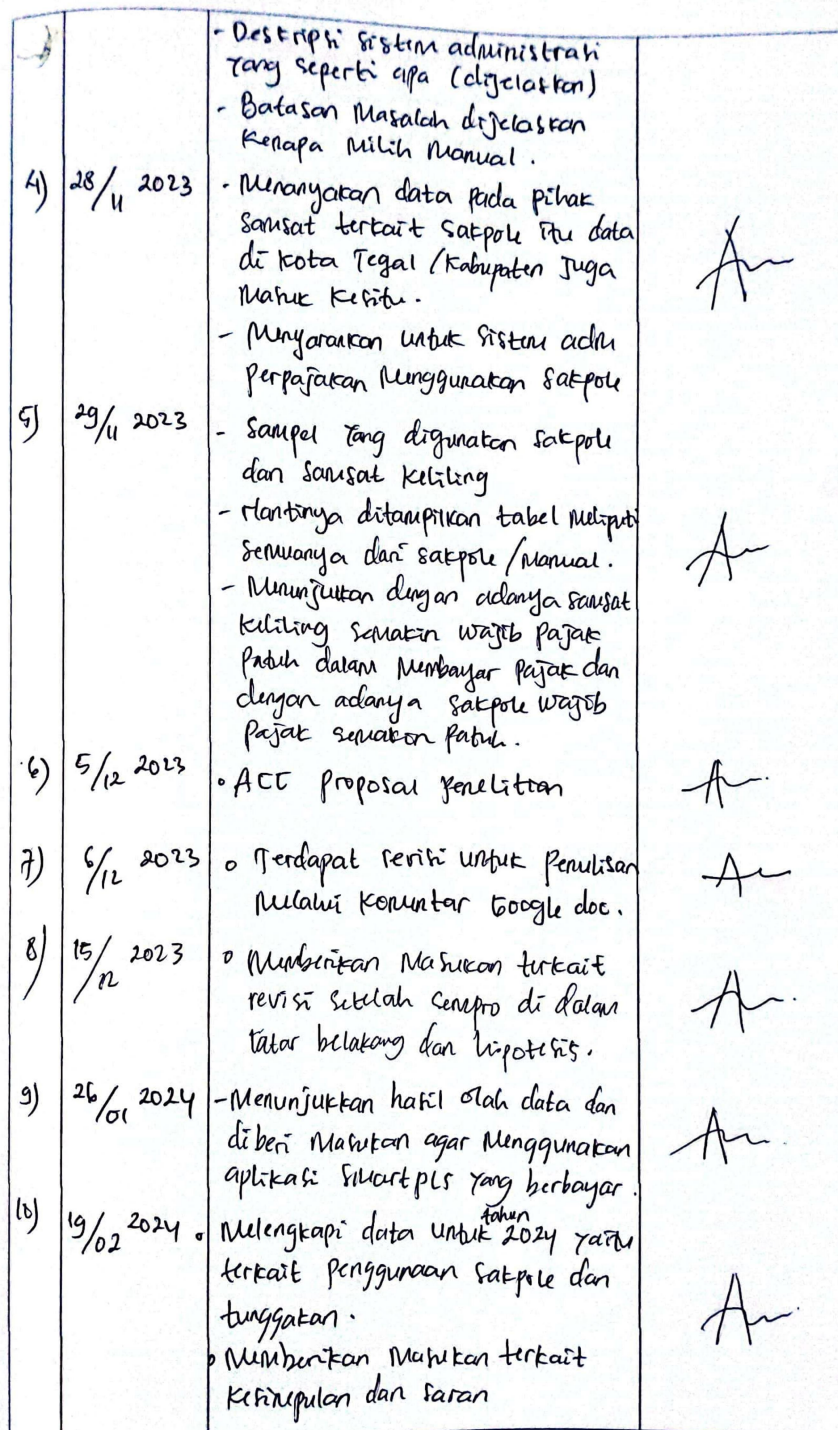 - Deskripsi sistem administrasi
yang seperti apa (dijelaskan)
- Batasan Masalah dijelaskan
Kenapa Milih Manual.
4) 28/11 2023 - Menanyakan data pada pihak
Samsat terkait Sakpole itu data
di Kota Tegal / Kabupaten Juga
Masuk Kesitu.
- Menyarankan untuk Sistem adm
perpajakan Menggunakan Sakpole
5) 29/11 2023 - Sampel Yang digunakan Sakpole
dan Samsat Keliling
- Nantinya ditampilkan tabel Meliputi
Semuanya dari Sakpole / Manual.
- Menunjukkan dengan adanya Samsat
Keliling Semakin Wajib Pajak
Patuh dalam Membayar Pajak dan
dengan adanya Sakpole Wajib
Pajak semakin Patuh.
6) 5/12 2023 • ACC proposal penelitian
7) 6/12 2023 o Terdapat revisi untuk Penulisan
Melalui Komentar Google doc.
8) 15/12 2023 o Memberikan Masukan terkait
revisi Setelah Sempro di dalam
latar belakang dan hipotesis.
9) 26/01 2024 - Menunjukkan hasil olah data dan
diberi Masukan agar Menggunakan
aplikasi Smartpls Yang berbayar.
10) 19/02 2024 • Melengkapi data untuk tahun 2024 Yaitu
terkait penggunaan Sakpole dan
tunggakan.
• Memberikan Masukan terkait
Kesimpulan dan Saran